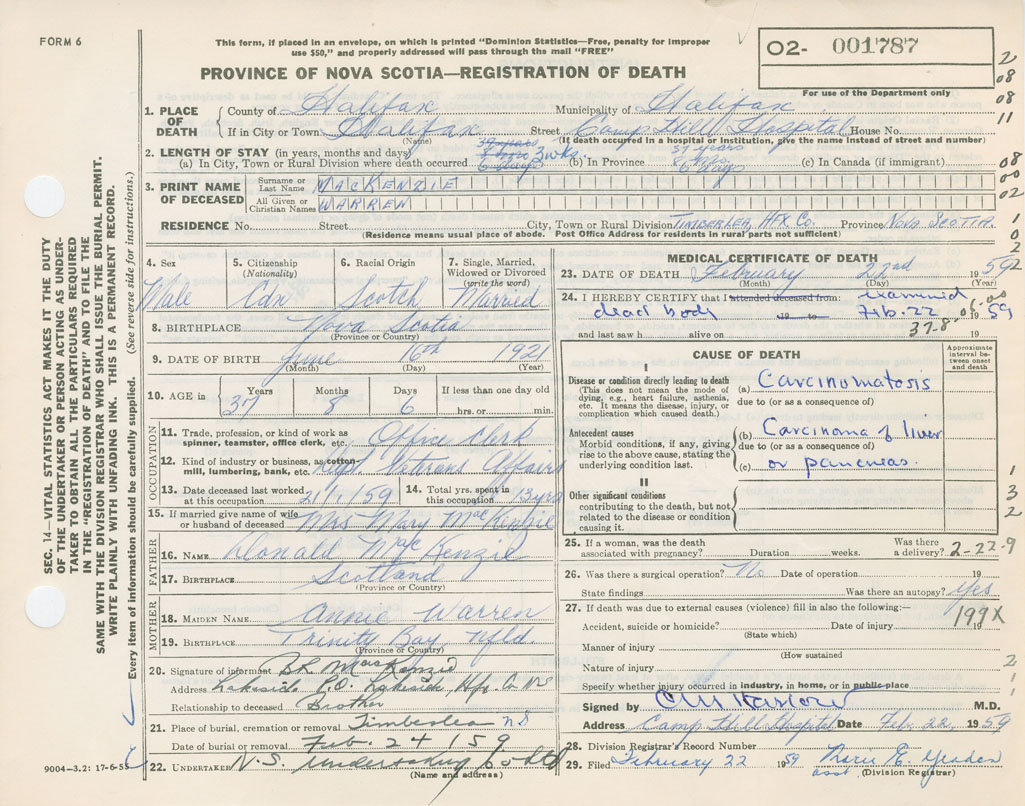 FORM 6
This form, if placed in an envelope, on which is printed "Dominion Statistics—Free, penalty for improper
use $50," and properly addressed will pass through the mail "FREE"
O2- 001787
For use of the Department only
PROVINCE OF NOVA SCOTIA—REGISTRATION OF DEATH
2
08
08
11
08
00
02
1
0
2
SEC. 14—VITAL STATISTICS ACT MAKES IT THE DUTY
OF THE UNDERTAKER OR PERSON ACTING AS UNDER-
TAKER TO OBTAIN ALL THE PARTICULARS REQUIRED
IN THE "REGISTRATION OF DEATH" AND TO FILE THE
SAME WITH THE DIVISION REGISTRAR WHO SHALL ISSUE THE BURIAL PERMIT.
WRITE PLAINLY WITH UNFADING INK. THIS IS A PERMANENT RECORD.
Every item of information should be carefully supplied. (See reverse side for instructions.)
1. PLACE OF DEATH County of Halifax Municipality of Halifax
If in City or Town Halifax Street Camp Hill Hospital House No.
(Name) (If death occurred in a hospital or institution, give the name instead of street and number)
2. LENGTH OF STAY (in years, months and days) 37 years
(a) In City, Town or Rural Division where death occurred 3 wks (b) In Province 8 mos 6 days (c) In Canada (if immigrant)
3. PRINT NAME OF DECEASED Surname or Last Name MACKENZIE
All Given or Christian Names WARREN
RESIDENCE No. Street City, Town or Rural Division TIMBERLEA, HFX Co. Province NOVA SCOTIA
(Residence means usual place of abode. Post Office Address for residents in rural parts not sufficient)
4. Sex 5. Citizenship (Nationality) 6. Racial Origin 7. Single, Married, Widowed or Divorced (write the word)
Male Cdn Scotch Married
8. BIRTHPLACE Nova Scotia
(Province or Country)
9. DATE OF BIRTH June 16th 1921
(Month) (Day) (Year)
10. AGE in Years Months Days If less than one day old
37 8 6 hrs. or min.
OCCUPATION
11. Trade, profession, or kind of work as spinner, teamster, office clerk, etc. Office Clerk
12. Kind of industry or business, as cotton-mill, lumbering, bank, etc. Dept Veterans Affairs
13. Date deceased last worked at this occupation 21/1/59 14. Total yrs. spent in this occupation 13 yrs
15. If married give name of wife or husband of deceased Mrs Mary MacKenzie
FATHER
16. NAME Donald MacKenzie
17. BIRTHPLACE Scotland
(Province or Country)
MOTHER
18. MAIDEN NAME Annie Warren
19. BIRTHPLACE Trinity Bay Nfld.
(Province or Country)
20. Signature of informant B.R. MacKenzie
Address Lakeside P.O. Lakeside Hfx. Co NS
Relationship to deceased Brother
21. Place of burial, cremation or removal Timberlea NS
Date of burial or removal Feb. 24 / 59
22. UNDERTAKER N.S. Undertaking Co Ltd
(Name and address)
9004—3.2: 17-6-55
MEDICAL CERTIFICATE OF DEATH
23. DATE OF DEATH February 22nd 1959
(Month) (Day) (Year)
24. I HEREBY CERTIFY that I attended deceased from: examined
dead body 19 to Feb. 22 1959
and last saw h alive on 19
37-8-06.00
CAUSE OF DEATH
Approximate interval between onset and death
I
Disease or condition directly leading to death (a) Carcinomatosis
(This does not mean the mode of dying, e.g., heart failure, asthenia, etc. It means the disease, injury, or complication which caused death.) due to (or as a consequence of)
Antecedent causes (b) Carcinoma of liver
Morbid conditions, if any, giving rise to the above cause, stating the underlying condition last. due to (or as a consequence of)
(c) or pancreas
II
Other significant conditions
contributing to the death, but not related to the disease or condition causing it.
1
3
2
25. If a woman, was the death associated with pregnancy? Duration weeks. Was there a delivery? 2-22-9
26. Was there a surgical operation? No Date of operation 19
State findings Was there an autopsy? Yes
27. If death was due to external causes (violence) fill in also the following:—
Accident, suicide or homicide? Date of injury 19
(State which)
199X
Manner of injury
(How sustained
Nature of injury
Specify whether injury occurred in industry, in home, or in public place
2
1
1
Signed by C M Harlow M.D.
Address Camp Hill Hospital Date Feb. 22, 1959
28. Division Registrar's Record Number
29. Filed February 22 1959 Marie E.
asst (Division Registrar)